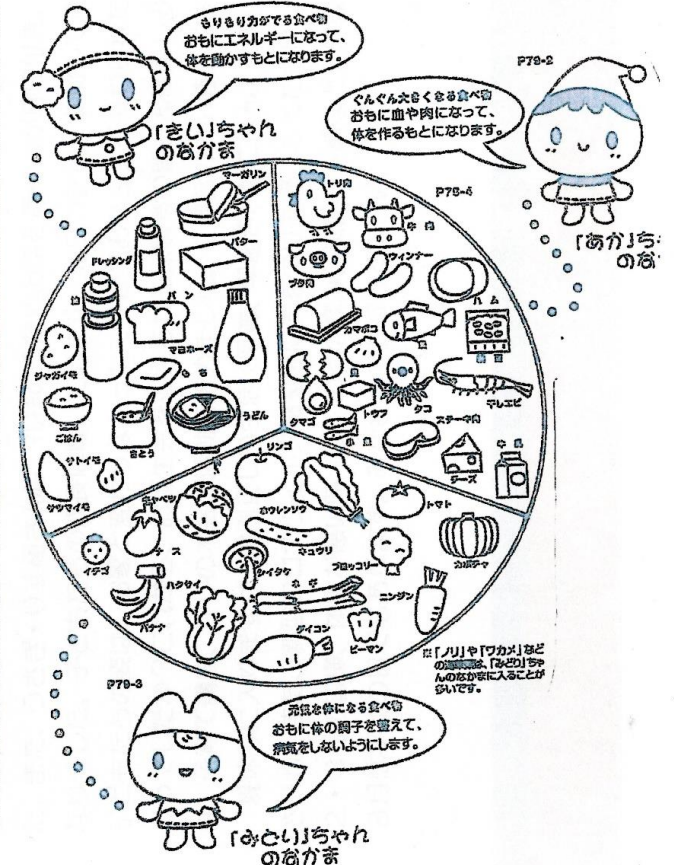 もりもり力がでる食べ物
おもにエネルギーになって、
体を動かすもとになります。
「きい」ちゃん
のなかま
P79-2
ぐんぐん大きくなる食べ物
おもに血や肉になって、
体を作るもとになります。
「あか」ち
のな
P79-4
マーガリン
バター
ドレッシング
油
パン
マヨネーズ
ジャガイモ
もち
ごはん
さとう
うどん
サトイモ
サツマイモ
トリ肉
牛肉
ブタ肉
ウィンナー
ハム
カマボコ
魚
貝
納豆
タマゴ
トウフ
タコ
クルマエビ
小魚
ステーキ肉
チーズ
牛乳
リンゴ
キャベツ
ホウレンソウ
トマト
ナス
キュウリ
イチゴ
シイタケ
ブロッコリー
カボチャ
バナナ
ハクサイ
ネギ
ニンジン
ダイコン
ピーマン
※「ノリ」や「ワカメ」など
の海藻類は、「みどり」ちゃ
んのなかまに入ることが
多いです。
P79-3
元気な体になる食べ物
おもに体の調子を整えて、
病気をしないようにします。
「みどり」ちゃん
のなかま